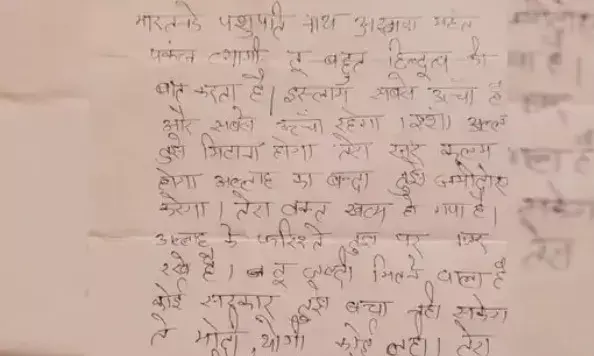 पशुपति नाथ अखाड़ा महंत
त्यागी तू बहुत हिन्दुत्व की
बात करता है। इस्लाम सबसे ऊंचा है
और सबसे ऊंचा रहेगा।
तुझे मिटाना होगा तेरा सर कलम
होगा अल्लाह का बन्दा तुझे
करेगा। तेरा वक्त खत्म हो गया है।
अल्लाह के फरिश्ते तुझ पर नजर
रखे है। तू जल्दी मिलने वाला है
कोई सरकार तुझे बचा नही सकेगा
मोदी, योगी कोई नही। तेरा